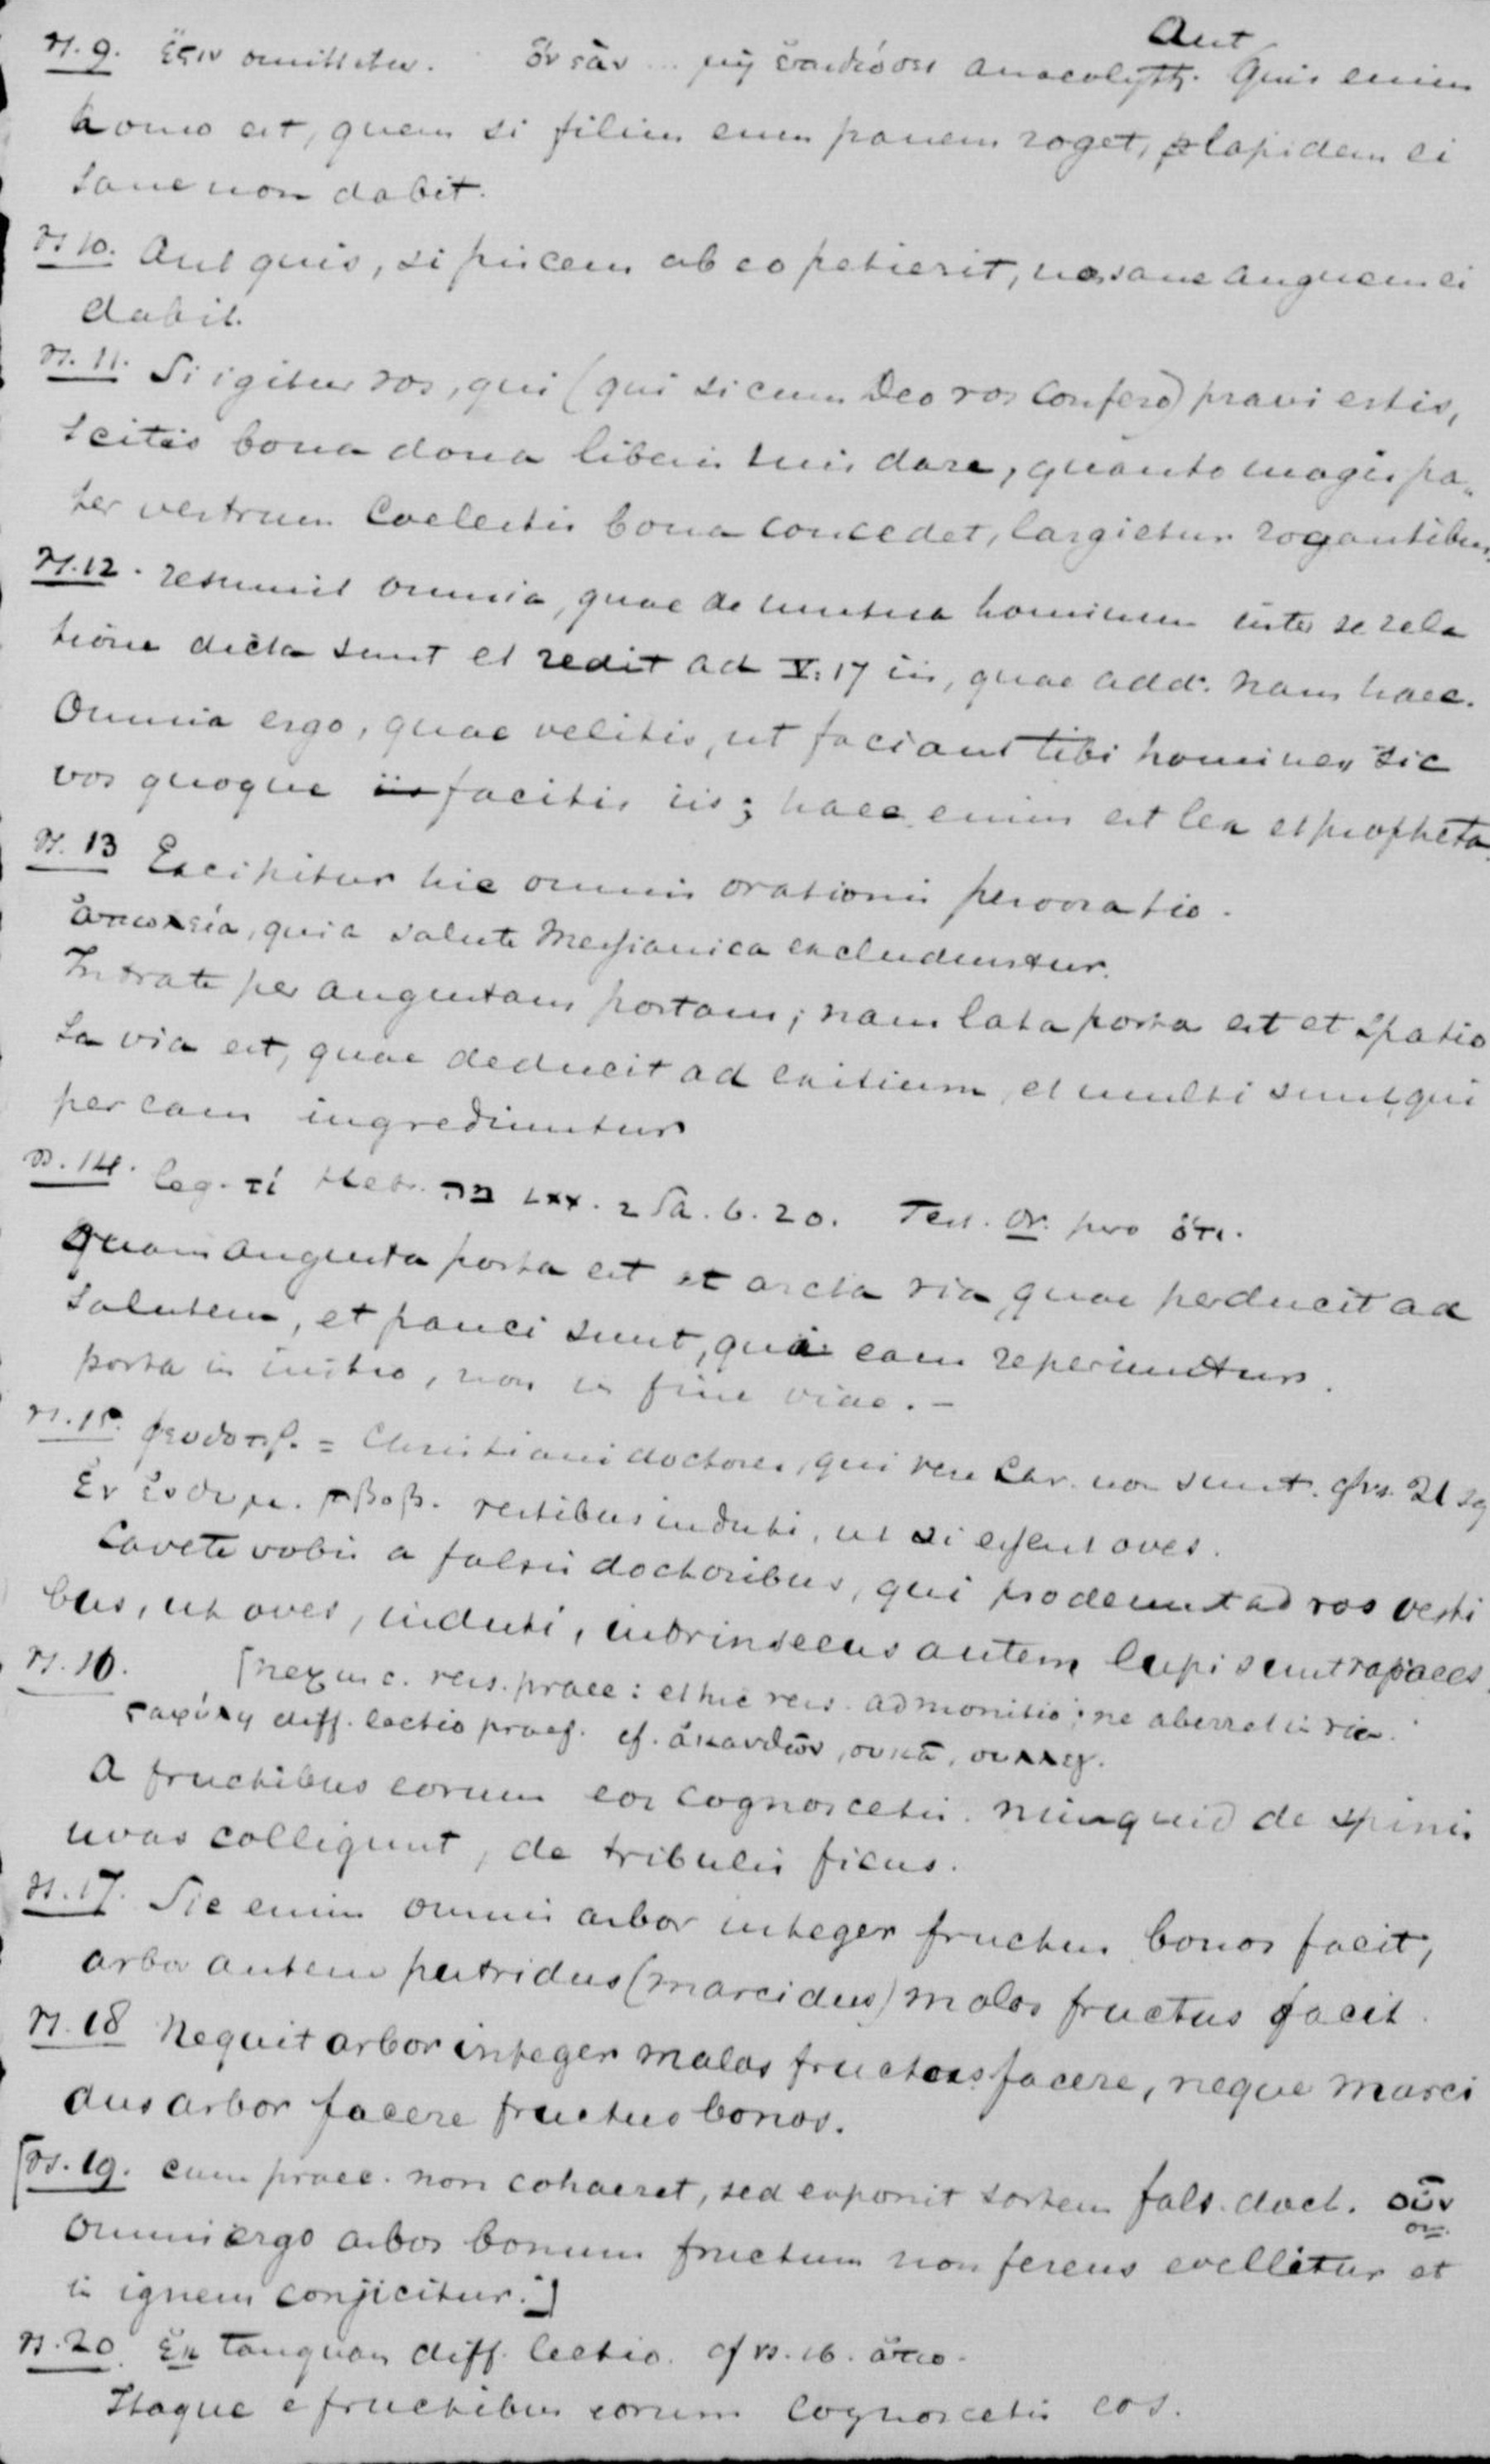 vs. 9. ἔστιν omittitur. ὃν ἐὰν ... μὴ ἐπιδώσει anacolyth. Aut Quis enim
homo est, quem si filius eum panem roget, lapidem ei
sane non dabit.
vs 10. Aut quis, si piscem ab eo petierit, non sane anguem ei
dabit.
vs. 11. Si igitur vos, qui (qui si cum Deo vos confero) pravi estis,
scitis bona dona liberis suis dare, quanto magis pa„
ter vestrum coelestis bona concedet, largietur rogantibus.
vs. 12. resumit omnia, quae de mutua hominum inter se rela
tione dicta sunt et redit ad V:17 iis, quae add. nam haec.
Omnia ergo, quae velitis, ut faciant tibi homines sic
vos quoque facitis iis; haec enim est lex et propheta.
vs. 13 Excipitur hic omnis orationis peroratio.
ἀπώλεια, quia salute Messianica excluduntur.
Intrate per angustam portam; nam lata porta est et spatio
sa via est, quae deducit ad exitium, et multi sunt, qui
per eam ingrediuntur
vs. 14. leg. τί Hebr. מה LXX. 2 Sa. 6.20. Tert. Or. pro ὅτι.
Quam angusta porta est et arcta via quae perducit ad
salutem, et pauci sunt, qui eam reperiuntur.
porta in initio, non in fine viae. —
vs. 15. ψευδοπρ. = Christiani doctores, qui vere Chr. non sunt. cf vs. 21 sq
Ἐν ἐνδυμ. προβ. vestibus induti, ut si essent oves.
Cavete vobis a falsis doctoribus, qui prodeunt ad vos vesti
bus, ut oves, induti, intrinsecus autem lupi sunt rapaces.
vs. 16. [nexus c. vers. praec: et hic vers. admonitio: ne aberret in via.
σταφύλη diff. lectio praef. cf. ἀκανθῶν, συκᾶ, συλλεγ.
A fructibus eorum eos cognoscetis. numquid de spinis
uvas colligunt, de tribulis ficus.
vs. 17. Sic enim omnis arbor integer fructus bonos facit,
arbor autem putridus (marcidus) malos fructus facit.
vs. 18 Nequit arbor integer malos fructus facere, neque marci
dus arbor facere fructus bonos.
[vs. 19. cum praec. non cohaeret, sed exponit sortem fals. doct. οὖν
om.
Omnis ergo arbos bonum fructum non ferens evellitur et
in ignem conjicitur.]
vs. 20. Ἐκ tanquam diff. lectio. cf vs. 16. ἀπο.
Itaque e fructibus eorum cognoscetis eos.